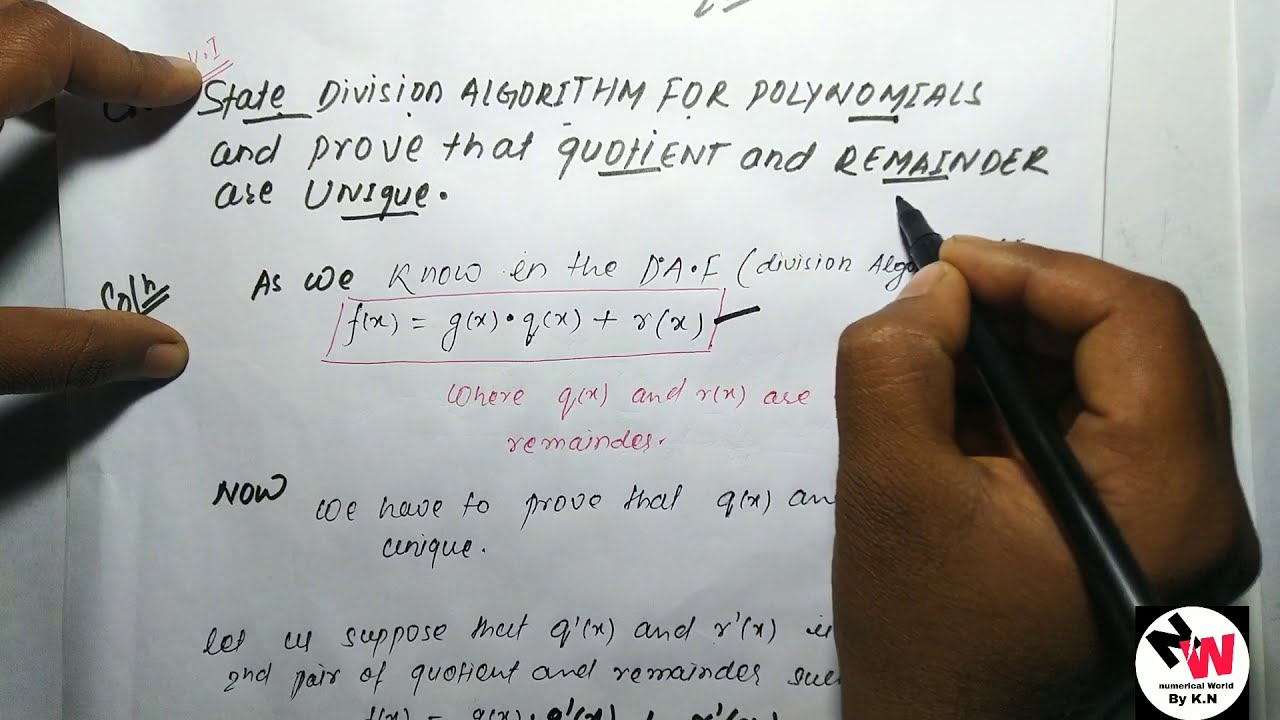 V.I
State Division ALGORITHM FOR POLYNOMIALS
and prove that QUOTIENT and REMAINDER
are UNIQUE.
Solⁿ
As we Know in the D.A.F (division
f(x) = g(x)·q(x) + r(x)
Where q(x) and r(x) are
remainder.
NOW we have to prove that q(x) an
unique.
let us suppose that q'(x) and r'(x) is
2nd pair of quotient and remainder
f(x) = g(x)·q'(x) + r'(x)
NW
numerical World
By K.N